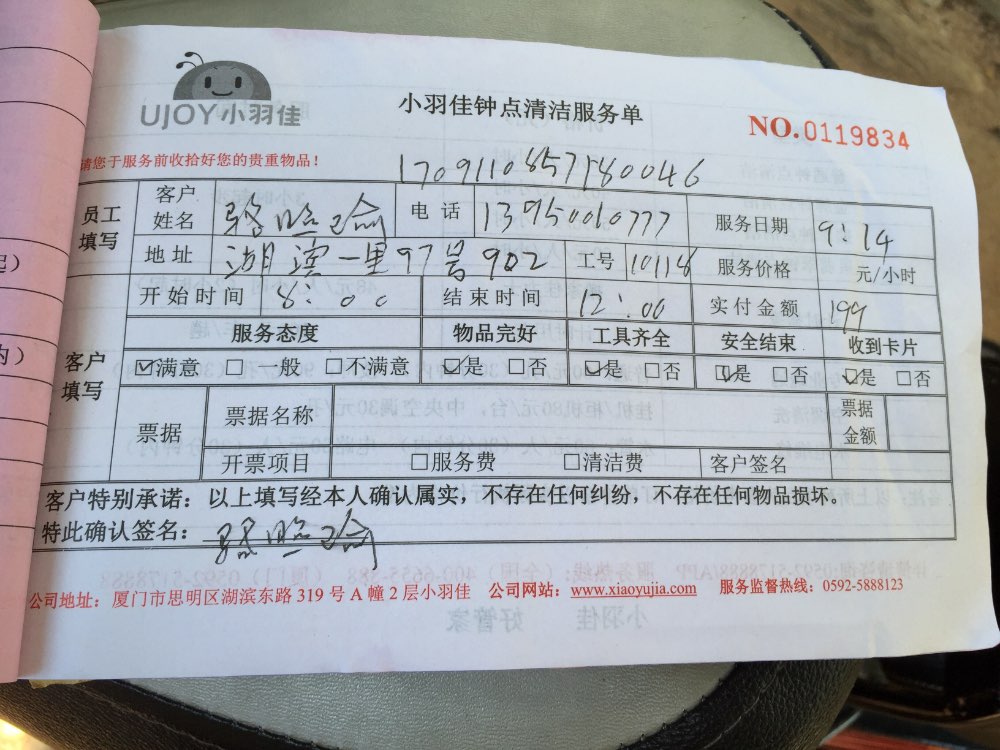 UJOY小羽佳
小羽佳钟点清洁服务单
NO.0119834
请您于服务前收拾好您的贵重物品!
1709110857180046
员工填写 客户姓名 电话 13950010777 服务日期 9:14
地址 湖滨一里97号902 工号 10118 服务价格 元/小时
开始时间 8:00 结束时间 12:00 实付金额 199
客户填写 服务态度 物品完好 工具齐全 安全结束 收到卡片
☑满意 □一般 □不满意 ☑是 □否 ☑是 □否 ☑是 □否 ☑是 □否
票据 票据名称 票据金额
开票项目 □服务费 □清洁费 客户签名
客户特别承诺:以上填写经本人确认属实,不存在任何纠纷,不存在任何物品损坏。
特此确认签名:
公司地址:厦门市思明区湖滨东路 319 号 A 幢 2 层小羽佳 公司网站:www.xiaoyujia.com 服务监督热线:0592-5888123